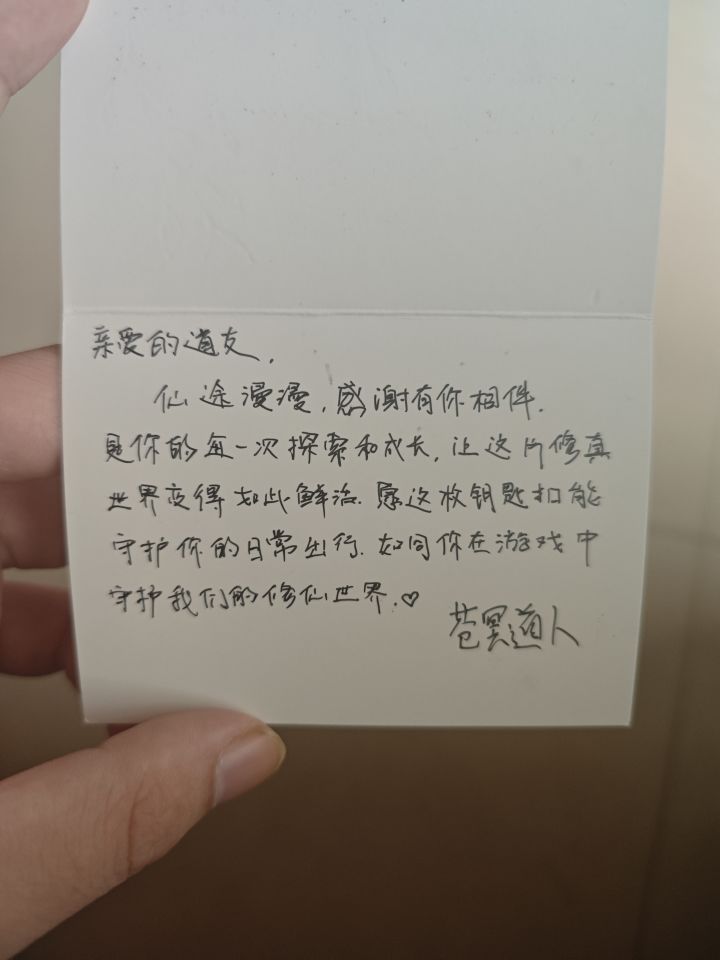 亲爱的道友，
仙途漫漫，感谢有你相伴.
是你的每一次探索和成长，让这片修真
世界变得如此鲜活.愿这枚钥匙扣能
守护你的日常出行.如同你在游戏中
守护我们的修仙世界.♡
苍冥道人